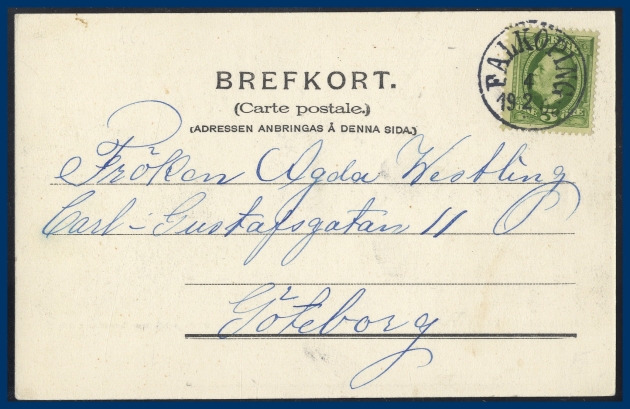 FALKÖPING
4
19.2
BREFKORT.
(Carte postale.)
(ADRESSEN ANBRINGAS Å DENNA SIDA.)
Fröken Agda Westling
Carl-Gustafsgatan 11
Göteborg